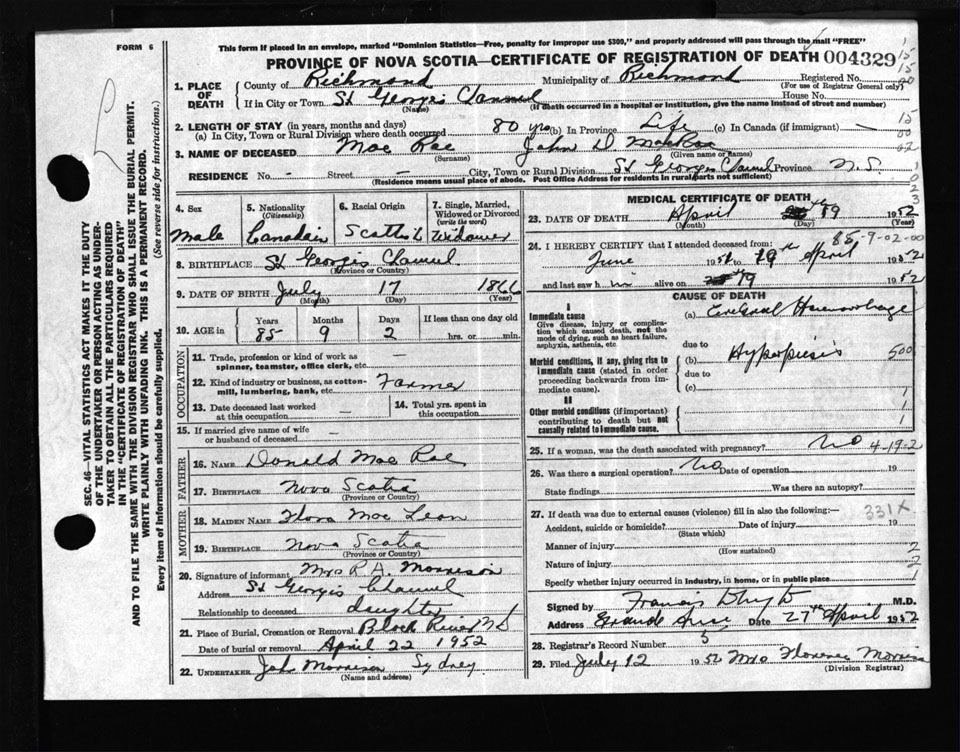 FORM 6
This form if placed in an envelope, marked "Dominion Statistics—Free, penalty for improper use $300," and properly addressed will pass through the mail "FREE"
PROVINCE OF NOVA SCOTIA—CERTIFICATE OF REGISTRATION OF DEATH 004329
1. PLACE OF DEATH
County of Richmond Municipality of Richmond Registered No.
(For use of Registrar General only)
If in City or Town St Georges Channel House No.
(Name) (If death occurred in a hospital or institution, give the name instead of street and number)
2. LENGTH OF STAY (in years, months and days)
(a) In City, Town or Rural Division where death occurred 80 yrs (b) In Province Life (c) In Canada (if immigrant) —
3. NAME OF DECEASED Mac Rae John D MacRae
(Surname) (Given name or names)
RESIDENCE No. - Street — City, Town or Rural Division St Georges Channel Province N.S.
(Residence means usual place of abode. Post Office Address for residents in rural parts not sufficient)
4. Sex
Male
5. Nationality
(Citizenship)
Canadian
6. Racial Origin
Scottish
7. Single, Married, Widowed or Divorced
(write the word)
Widower
8. BIRTHPLACE St Georges Channel
(Province or Country)
9. DATE OF BIRTH July 17 1866
(Month) (Day) (Year)
10. AGE in Years Months Days If less than one day old
85 9 2 hrs. or min.
OCCUPATION
11. Trade, profession or kind of work as —
spinner, teamster, office clerk, etc.
12. Kind of industry or business, as cotton-mill, lumbering, bank, etc. Farmer
13. Date deceased last worked at this occupation —
14. Total yrs. spent in this occupation
15. If married give name of wife or husband of deceased —
FATHER
16. NAME Donald Mac Rae
17. BIRTHPLACE Nova Scotia
(Province or Country)
MOTHER
18. MAIDEN NAME Flora Mac Lean
19. BIRTHPLACE Nova Scotia
(Province or Country)
20. Signature of informant Mrs R A Morrison
Address St Georges Channel
Relationship to deceased daughter
21. Place of Burial, Cremation or Removal Black River N S
Date of burial or removal April 22 1952
22. UNDERTAKER John Morrison Sydney
(Name and address)
MEDICAL CERTIFICATE OF DEATH
23. DATE OF DEATH April 19 1952
(Month) (Day) (Year)
85-9-02-00
24. I HEREBY CERTIFY that I attended deceased from:
June 1951 to 19 April 1952
and last saw him alive on 19 1952
CAUSE OF DEATH
I
Immediate cause
Give disease, injury or complication which caused death, not the mode of dying, such as heart failure, asphyxia, asthenia, etc.
(a) Cerebral Haemorrhage
due to
Morbid conditions, if any, giving rise to immediate cause (stated in order proceeding backwards from immediate cause).
(b) Hyperpiesis 500
due to
(c) 1
II
Other morbid conditions (if important) contributing to death but not causally related to immediate cause.
1
1
25. If a woman, was the death associated with pregnancy? No 4-19-2
26. Was there a surgical operation? No Date of operation 19
State findings Was there an autopsy?
27. If death was due to external causes (violence) fill in also the following:— 331X
Accident, suicide or homicide? Date of injury 19
(State which)
Manner of injury 2
(How sustained)
Nature of injury 2
Specify whether injury occurred in industry, in home, or in public place 1
Signed by Francis M.D.
Address Grande Anse Date 27th April 1952
28. Registrar's Record Number 5
29. Filed July 12 1952 Mrs Florence Morrison
(Division Registrar)
SEC. 46—VITAL STATISTICS ACT MAKES IT THE DUTY
OF THE UNDERTAKER OR PERSON ACTING AS UNDER-
TAKER TO OBTAIN ALL THE PARTICULARS REQUIRED
IN THE "CERTIFICATE OF REGISTRATION OF DEATH"
AND TO FILE THE SAME WITH THE DIVISION REGISTRAR WHO SHALL ISSUE THE BURIAL PERMIT.
WRITE PLAINLY WITH UNFADING INK. THIS IS A PERMANENT RECORD.
Every item of information should be carefully supplied. (See reverse side for instructions.)